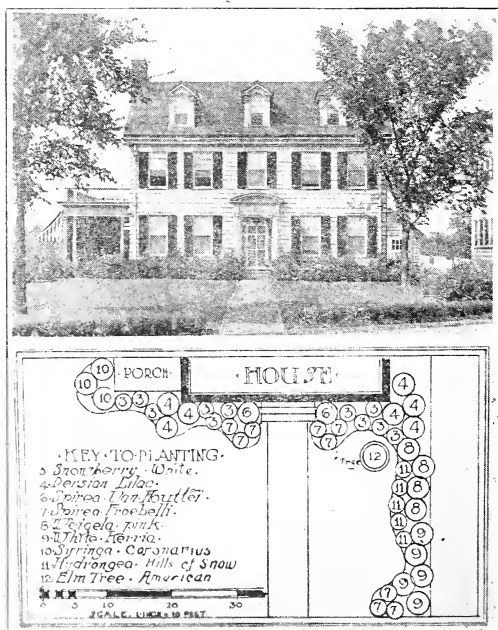 PORCH
HOUSE
10
10
10
3
3
4
3
4
4
3
3
3
7
6
7
7
6
3
3
7
7
3
3
4
4
4
4
Tree
12
8
11
8
11
11
8
11
11
9
9
9
9
17
7
7
KEY·TO·PLANTING
3 Snowberry · White.
4·Persian Lilac·
6·Spirea Van Houttei·
7·Spirea Froebelli·
8·Weigela pink·
9·White Kerria·
10·Syringa·Coronarius
11·Hydrangea·Hills of Snow
12·Elm Tree·American
0 5 10 20 30
SCALE, 1 INCH = 10 FEET